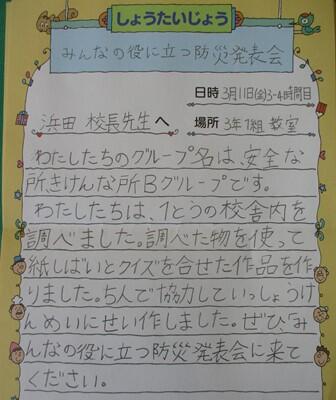 しょうたいじょう
みんなの役に立つ防災発表会
日時 3月11日(金)3-4時間目
浜田 校長先生へ 場所 3年1組 教室
わたしたちのグループ名は、安全な
所きけんな所Bグループです。
わたしたちは、1とうの校舎内を
調べました。調べた物を使って
紙しばいとクイズを合せた作品を作
りました。5人で協力していっしょうけ
んめいにせい作しました。ぜひ、「み
んなの役に立つ防災発表会に来て
ください。